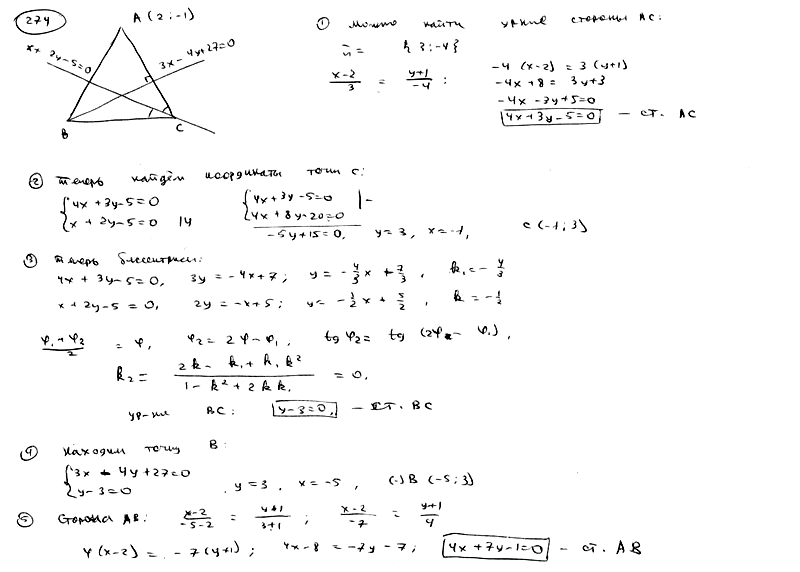 274
A (2 ; -1)
x + 2y - 5 = 0
3x - 4y + 27 = 0
B
C
① можно найти ур-ние стороны AC:
n̄ = {3 ; -4}
(x-2)/3 = (y+1)/-4 :
-4 (x-2) = 3 (y+1)
-4x + 8 = 3y + 3
-4x - 3y + 5 = 0
4x + 3y - 5 = 0 — ст. AC
② теперь найдём координаты точки C:
{ 4x + 3y - 5 = 0
x + 2y - 5 = 0 | 4
{ 4x + 3y - 5 = 0 | -
4x + 8y - 20 = 0
-5y + 15 = 0, y = 3, x = -1, C (-1 ; 3)
③ теперь биссектрисы:
4x + 3y - 5 = 0, 3y = -4x + 7 ; y = -4/3 x + 7/3 , k₁ = - 4/3
x + 2y - 5 = 0, 2y = -x + 5 ; y = -1/2 x + 5/2 , k = -1/2
(φ₁ + φ₂)/2 = φ, φ₂ = 2φ - φ₁ ; tg φ₂ = tg (2φ - φ₁) ,
k₂ = (2k - k₁ + k₁ k²)/(1 - k² + 2k k₁) = 0.
ур-ние BC: y - 3 = 0, — ст. BC
④ находим точку B:
{ 3x - 4y + 27 = 0
y - 3 = 0
y = 3, x = -5, (·) B (-5 ; 3)
⑤ Сторона AB: (x-2)/(-5-2) = (y+1)/(3+1) ; (x-2)/-7 = (y+1)/4
4 (x-2) = -7 (y+1) ; 4x - 8 = -7y - 7 ; 4x + 7y - 1 = 0 — ст. AB